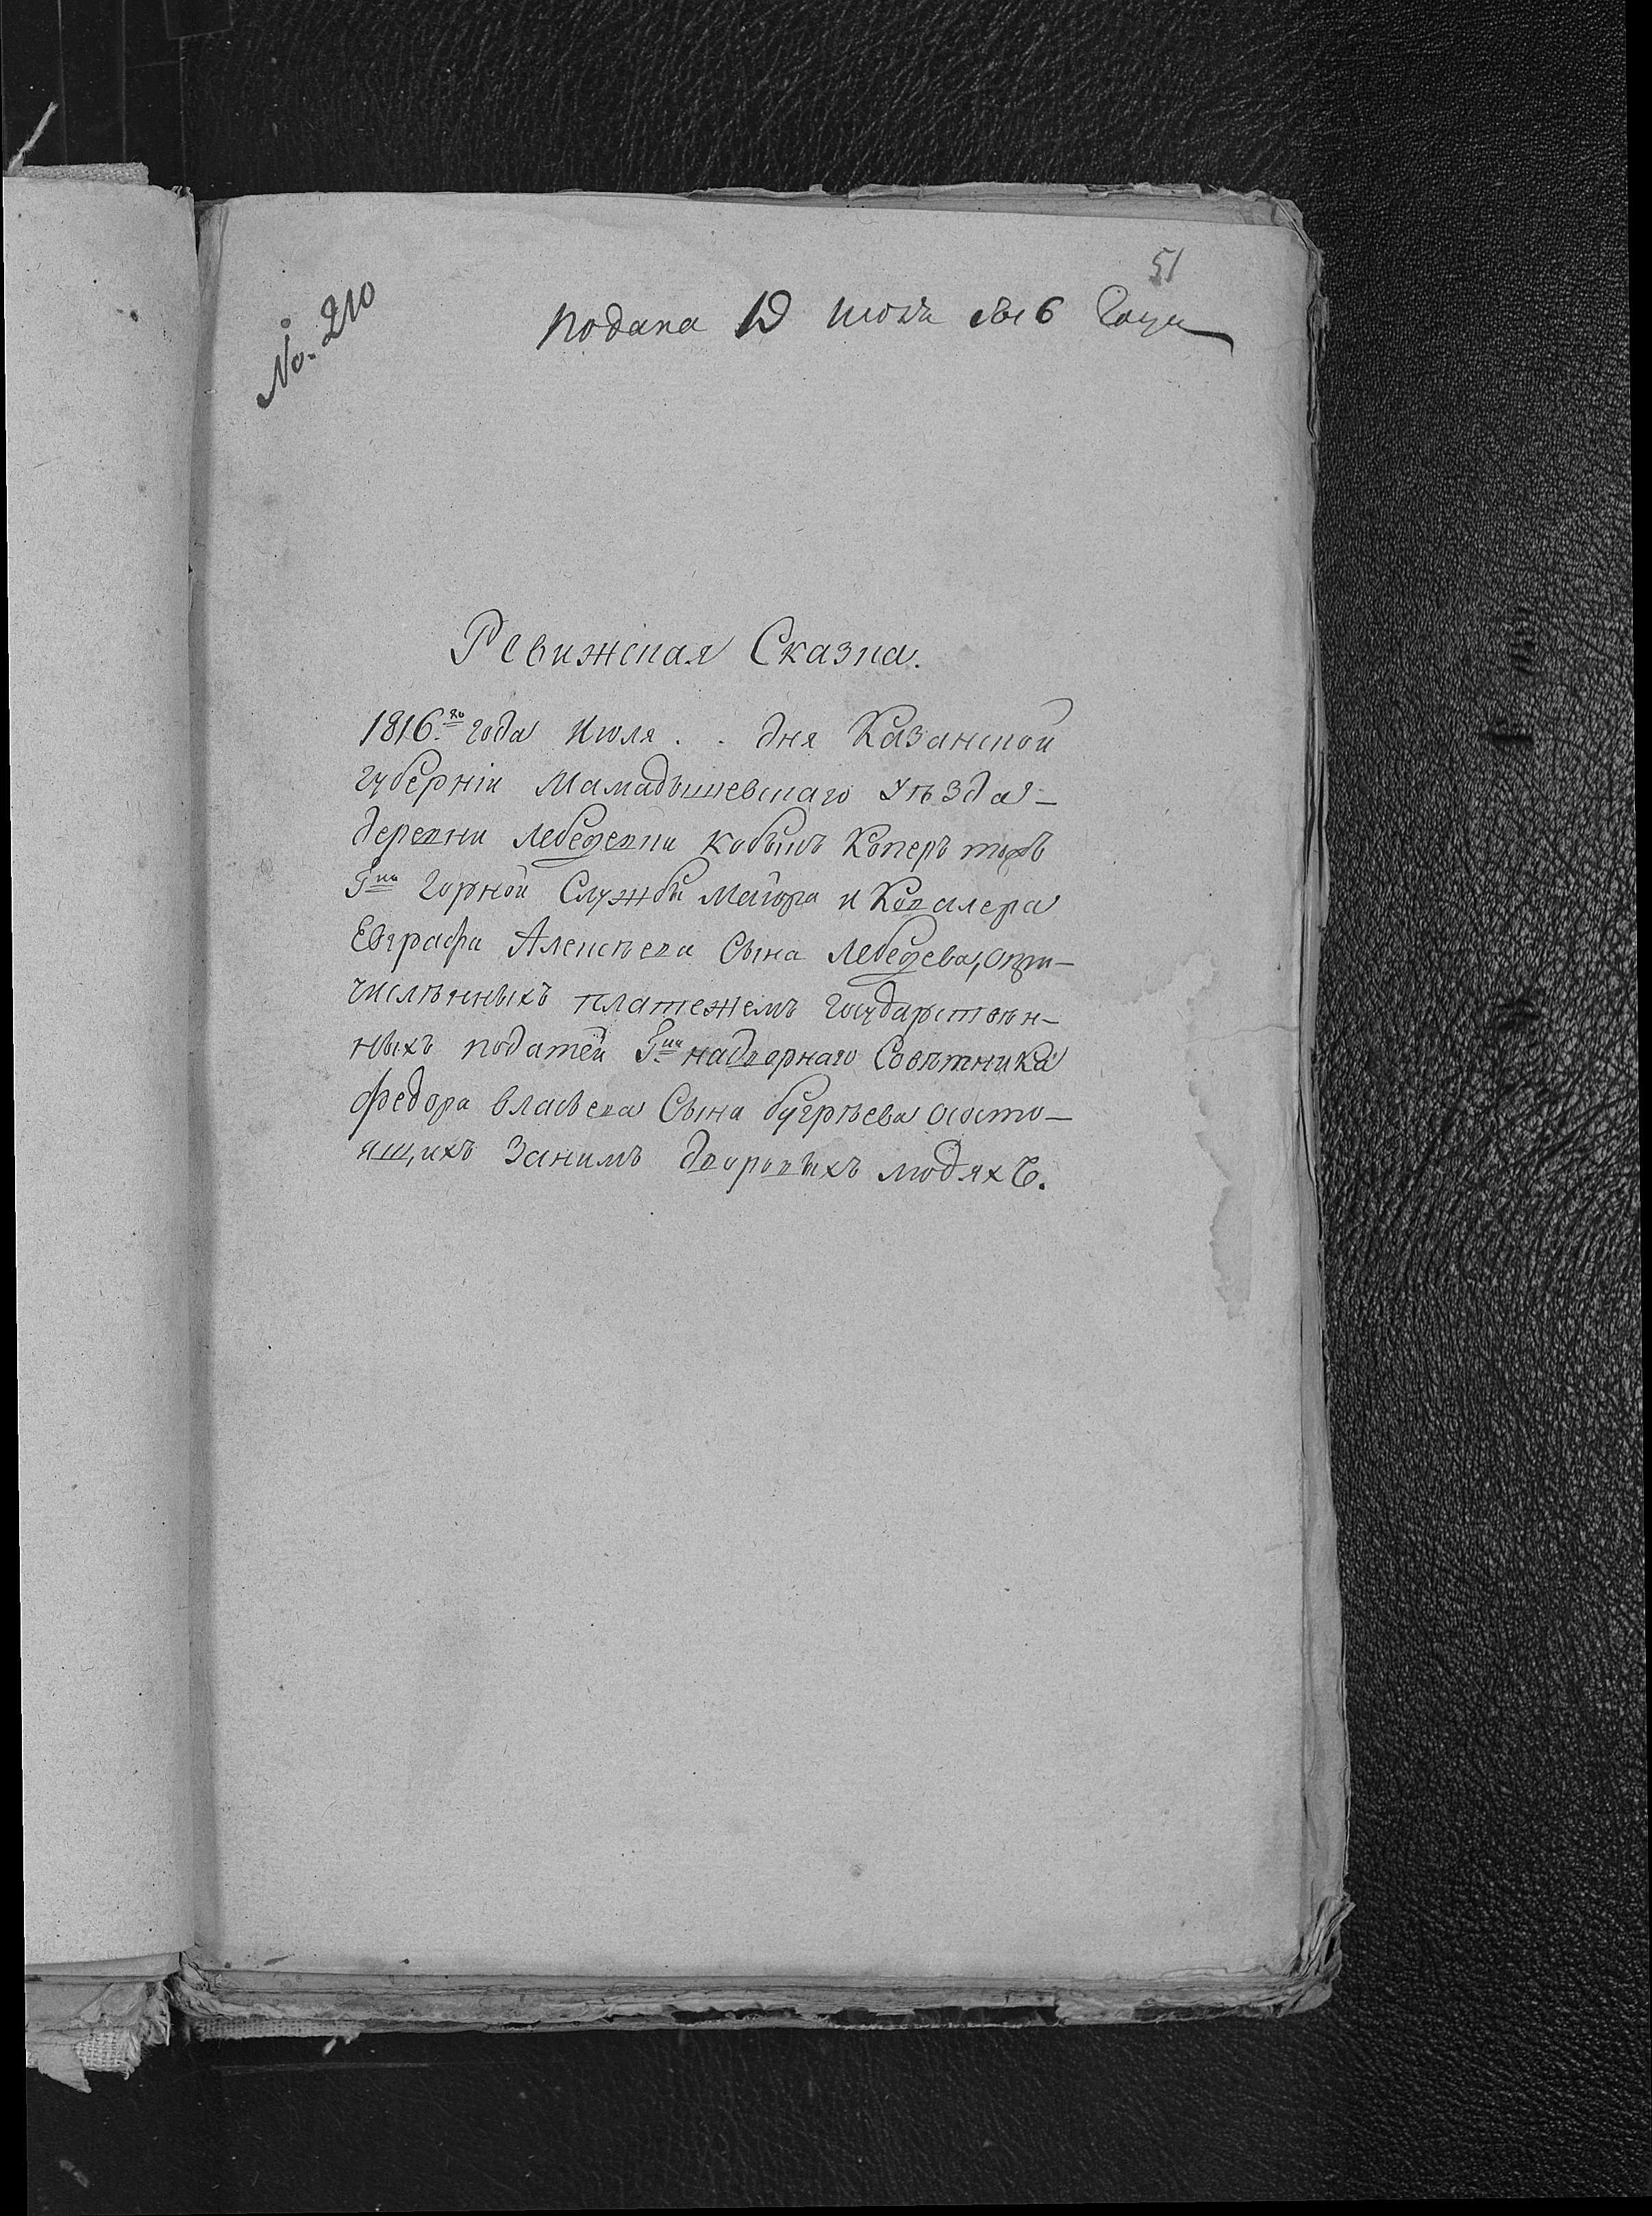 51
No. 210
подана 10 июля 1816 года
Ревижская Сказка.
1816.го года Июля . . дня Казанской
губерніи Мамадышевскаго уѣзда –
деревни Лебедевки Кобыкъ Коперъ тожъ
Гна Горной Службы Маіора и Кавалера
Евграфа Алексѣева Сына Лебедева, отчи–
численныхъ платежемъ государствен–
ныхъ податей Гна надворнаго Совѣтника
Федора Власьева Сына бугрѣева состо–
ящихъ Занимъ дворовыхъ людяхъ.